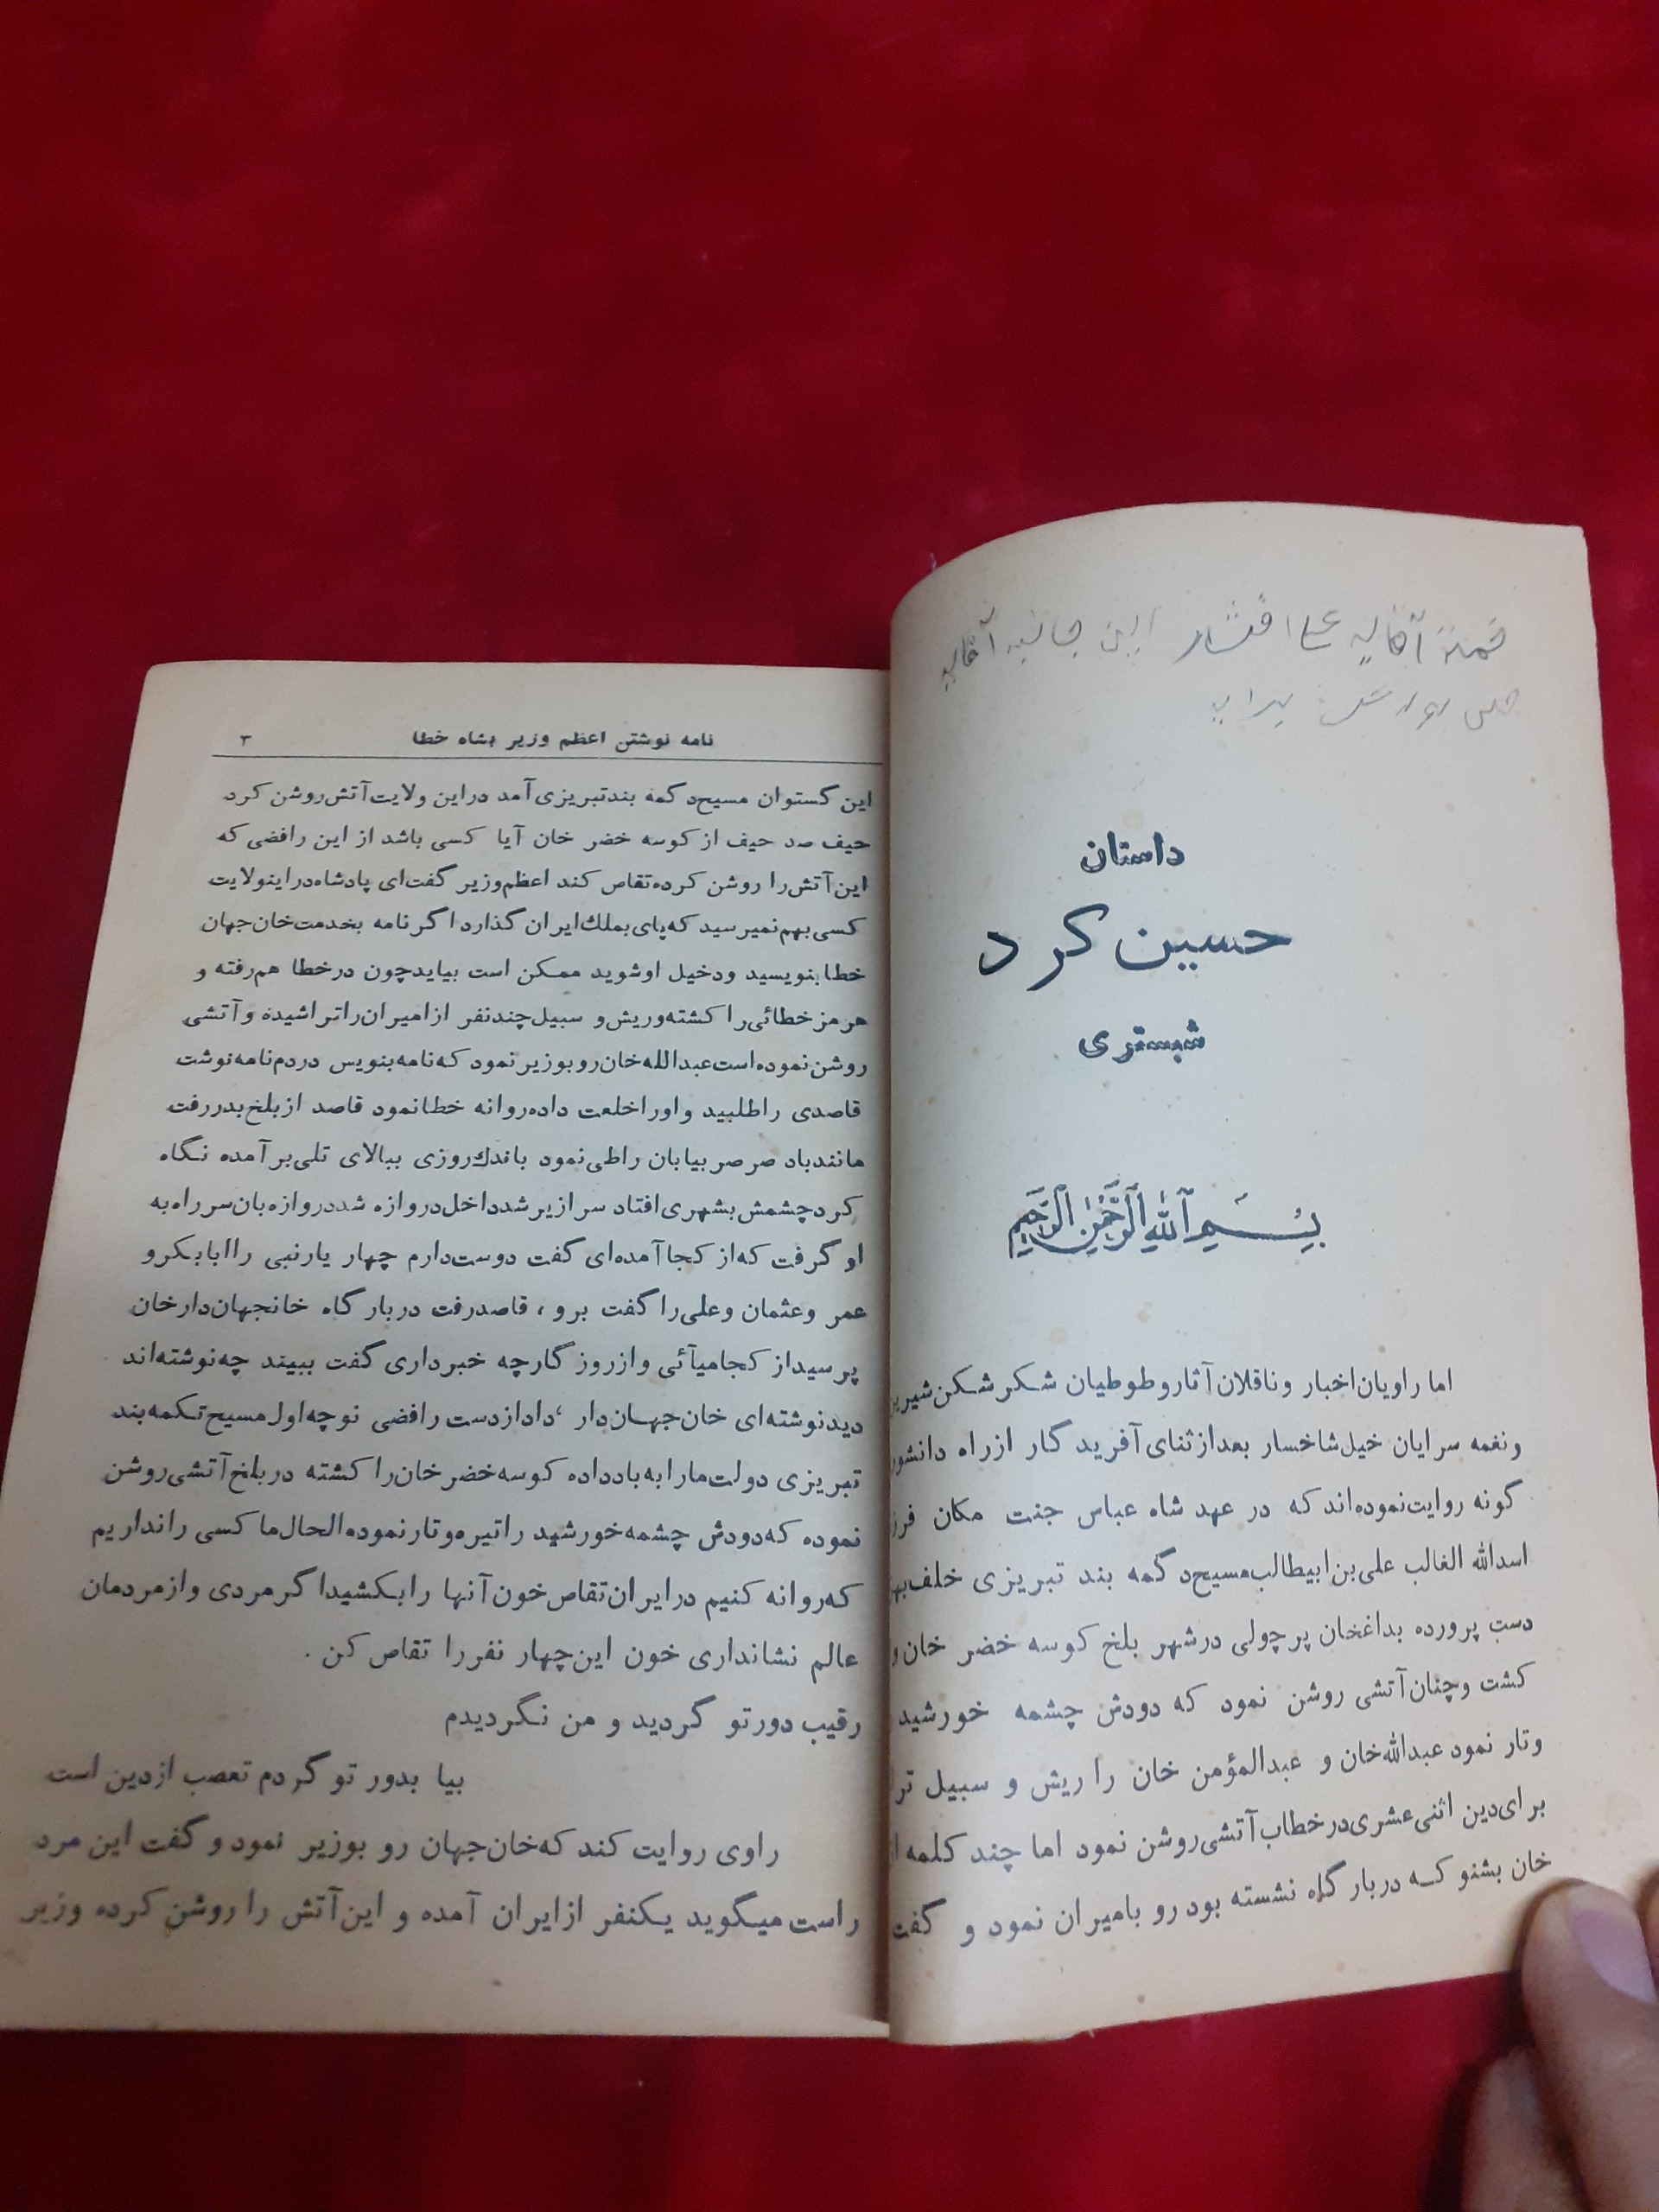 داستان
حسین کرد
شبستری
بسم الله الرحمن الرحیم
اما راویان اخبار و ناقلان آثار و طوطیان شکر شکن شیرین
و نغمه سرایان خیل شاخسار بعد از ثنای آفریدگار از راه دانشور
گونه روایت نموده‌اند که در عهد شاه عباس جنت مکان
اسدالله الغالب علی بن ابیطالب مسیح دکمه بند تبریزی خلف
دست پرورده بداغخان پرچولی در شهر بلخ کوسه خضر خان و
کشت و چنان آتشی روشن نمود که دودش چشمه خورشید
و تار نمود عبدالله خان و عبدالمؤمن خان را ریش و سبیل
برای دین اثنی عشری در خطاب آتشی روشن نمود اما چند کلمه
خان بشنو که دربارگاه نشسته بود رو بامیران نمود و گفت
نامه نوشتن اعظم وزیر بشاه خطا ۳
این گستوان مسیح دکمه بند تبریزی آمد در این ولایت آتش روشن کرد
حیف صد حیف از کوسه خضر خان آیا کسی باشد از این رافضی که
این آتش را روشن کرده تقاص کند اعظم وزیر گفت ای پادشاه در اینولایت
کسی بهم نمیرسید که پای بملک ایران گذارد اگر نامه بخدمت خان جهان
خطا بنویسید و دخیل او شوید ممکن است بیاید چون در خطا هم رفته و
هرمز خطائی را کشته و ریش و سبیل چند نفر از امیران را تراشیده و آتشی
روشن نموده است عبدالله خان رو بوزیر نمود که نامه بنویس در دم نامه نوشت
قاصدی را طلبید و او را خلعت داده روانه خطا نمود قاصد از بلخ بدر رفت
مانند باد صرصر بیابان را طی نمود باندك روزی ببالای تلی بر آمده نگاه
کرد چشمش بشهری افتاد سرازیر شد داخل دروازه شد دروازه‌بان سر راه به
او گرفت که از کجا آمده‌ای گفت دوست دارم چهار یار نبی را ابابکر و
عمر و عثمان و علی را گفت برو ، قاصد رفت دربارگاه خانجهان دار خان
پرسید از کجا میآئی و از روزگار چه خبر داری گفت ببیند چه نوشته‌اند
دید نوشته‌ای خان جهان دار ، داد از دست رافضی نوچه اول مسیح تکمه بند
تبریزی دولت ما را به باد داده کوسه خضر خان را کشته در بلخ آتشی روشن
نموده که دودش چشمه خورشید را تیره و تار نموده الحال ما کسی را نداریم
که روانه کنیم در ایران تقاص خون آنها را بکشید اگر مردی و از مردمان
عالم نشانداری خون این چهار نفر را تقاص کن .
رقیب دور تو گردید و من نگردیدم
بیا بدور تو گردم تعصب از دین است
راوی روایت کند که خان جهان رو بوزیر نمود و گفت این مرد
راست میگوید یکنفر از ایران آمده و این آتش را روشن کرده وزیر